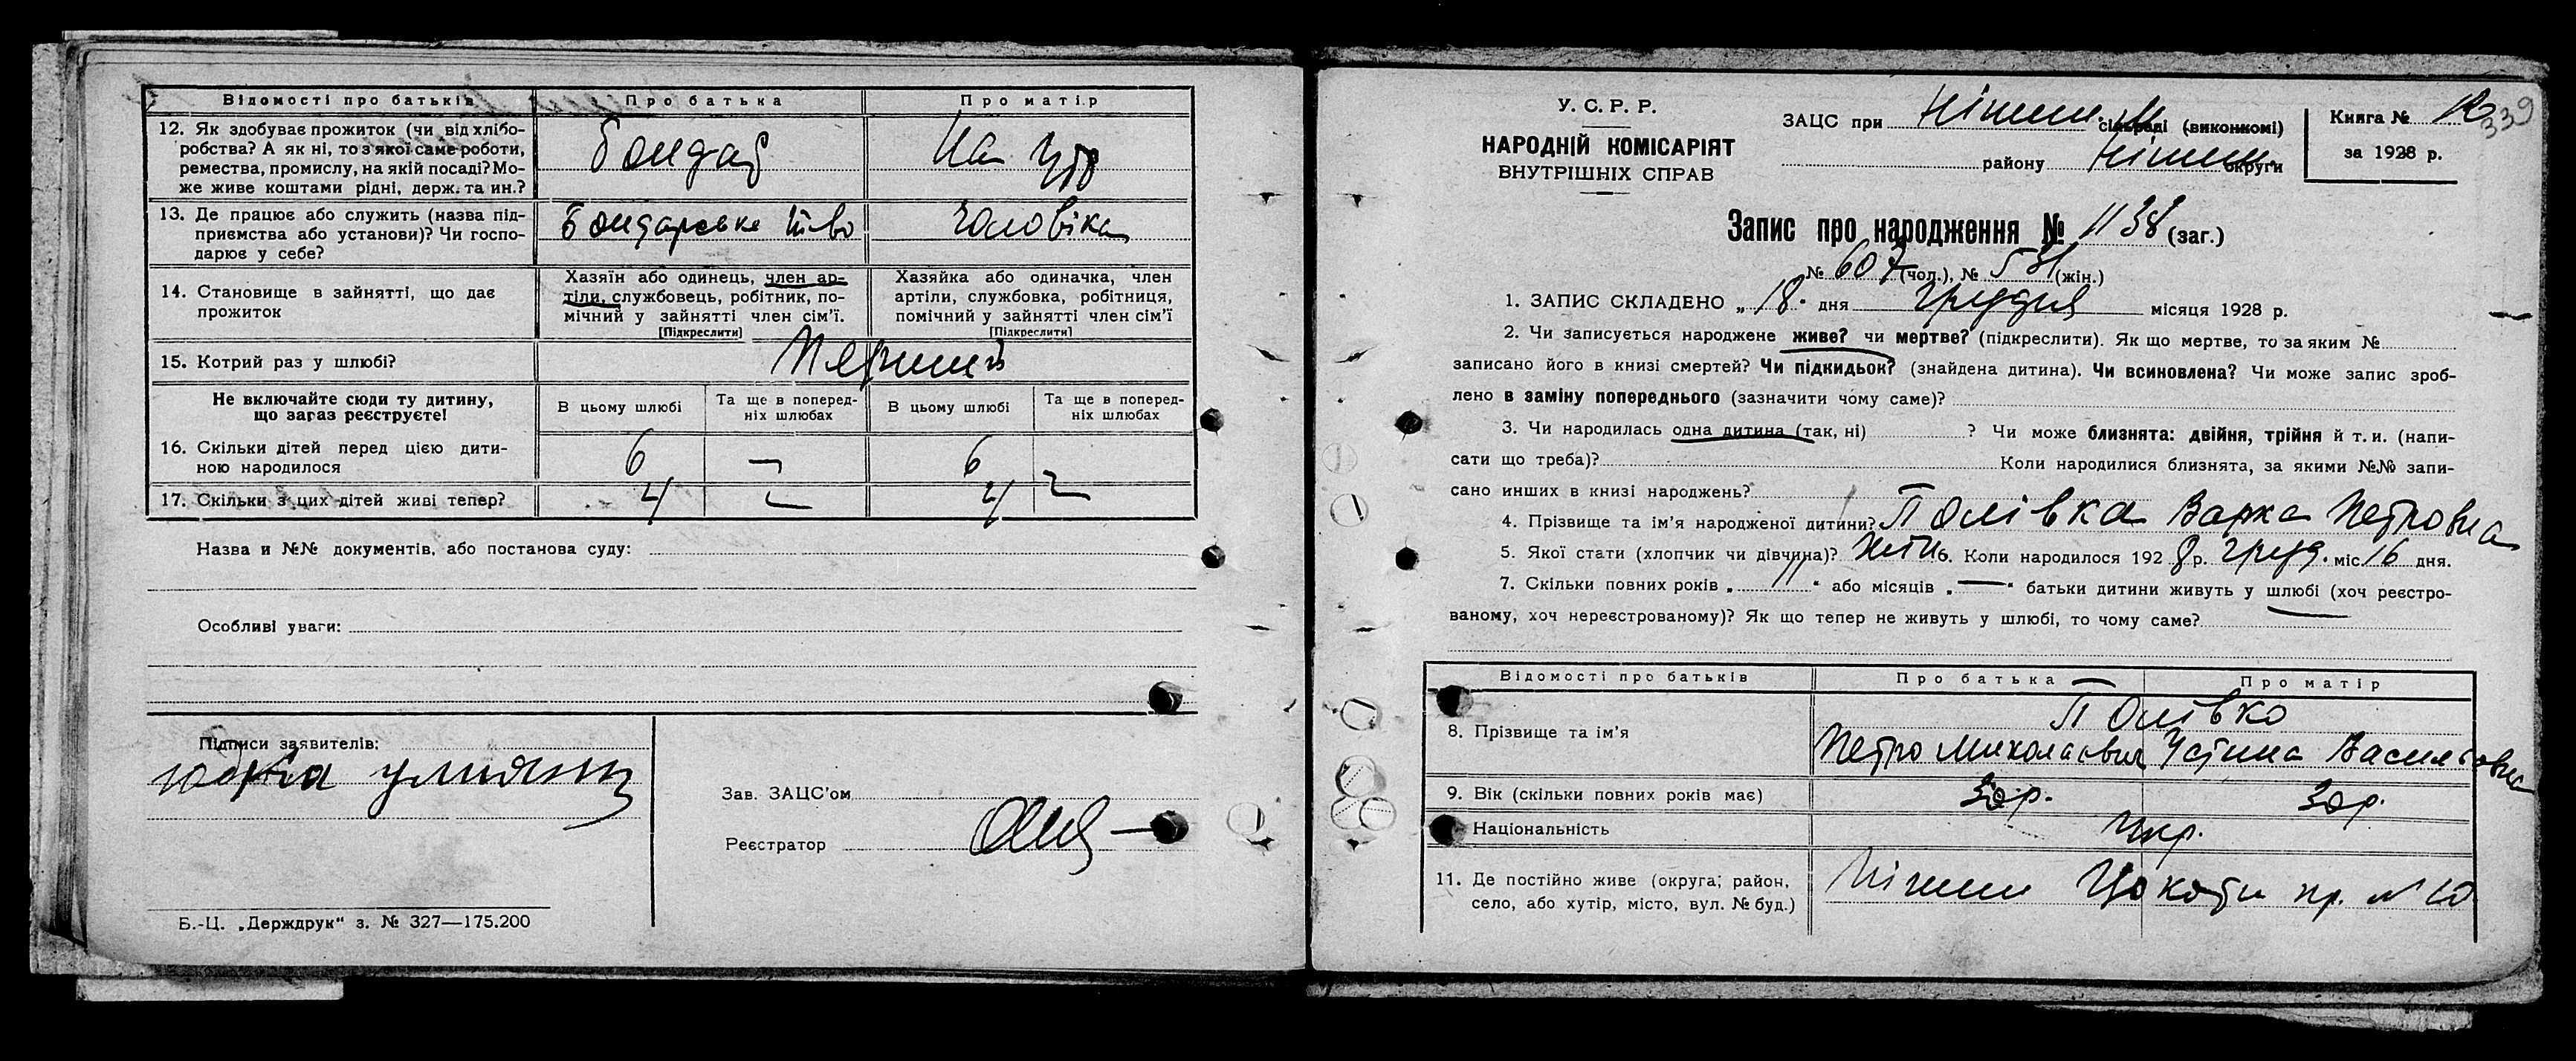 Відомості про батьків Про батька Про матір
12. Як здобуває прожиток (чи від хлібо-
робства? А як ні, то з якої саме роботи,
ремества, промислу, на якій посаді? Мо-
же живе коштами рідні, держ. та ин.?
Бондар На утр
13. Де працює або служить (назва під-
приємства або установи)? Чи госпо-
дарює у себе?
Бондарське т-во чоловіка
14. Становище в зайнятті, що дає
прожиток
Хазяїн або одинець, член ар-
тіли, службовець, робітник, по-
мічний у зайнятті член сім'ї.
[Підкреслити]
Хазяйка або одиначка, член
артіли, службовка, робітниця,
помічний у зайнятті член сім'ї
[Підкреслити]
15. Котрий раз у шлюбі? Перший
Не включайте сюди ту дитину,
що загаз реєструєте!
В цьому шлюбі
Та ще в поперед-
ніх шлюбах
В цьому шлюбі
Та ще в поперед-
ніх шлюбах
16. Скільки дітей перед цією дити-
ною народилося
6 — 6
17. Скільки з цих дітей живі тепер? 4 — 4 —
Назва и №№ документів, або постанова суду:
Особливі уваги:
Підписи заявителів:
Зав. ЗАЦС'ом
Реєстратор
Б.-Ц. „Держдрук“ з. № 327—175.200
У. С. Р. Р.
НАРОДНІЙ КОМІСАРІЯТ
ВНУТРІШНІХ СПРАВ
ЗАЦС при Ніжин. сільраді (виконкомі)
району Ніжин. округи
Книга № 12
за 1928 р.
339
Запис про народження № 1138 (заг.)
№ 607 (чол.), № 531 (жін.)
1. ЗАПИС СКЛАДЕНО „ 18. дня грудня місяця 1928 р.
2. Чи записується народжене живе? чи мертве? (підкреслити). Як що мертве, то за яким №
записано його в книзі смертей? Чи підкидьок? (знайдена дитина). Чи всиновлена? Чи може запис зроб-
лено в заміну попереднього (зазначити чому саме)?
3. Чи народилась одна дитина (так, ні) ? Чи може близнята: двійня, трійня й т. и. (напи-
сати що треба)? Коли народилися близнята, за якими №№ запи-
сано инших в книзі народжень?
4. Прізвище та ім'я народженої дитини? Полівка Варка Петровна
5. Якої стати (хлопчик чи дівчина)? 6. Коли народилося 192 8 р. груд. міс. 16 дня.
7. Скільки повних років „ 11 “ або місяців „ — “ батьки дитини живуть у шлюбі (хоч реєстро-
ваному, хоч нереєстрованому)? Як що тепер не живуть у шлюбі, то чому саме?
Відомості про батьків Про батька Про матір
Полівко
8. Прізвище та ім'я
Петро Миколаєвич Устина Васильовна
9. Вік (скільки повних років має) 30р. 30р.
Національність Укр.
11. Де постійно живе (округа, район,
село, або хутір, місто, вул. № буд.)
Ніжин пр. № 10